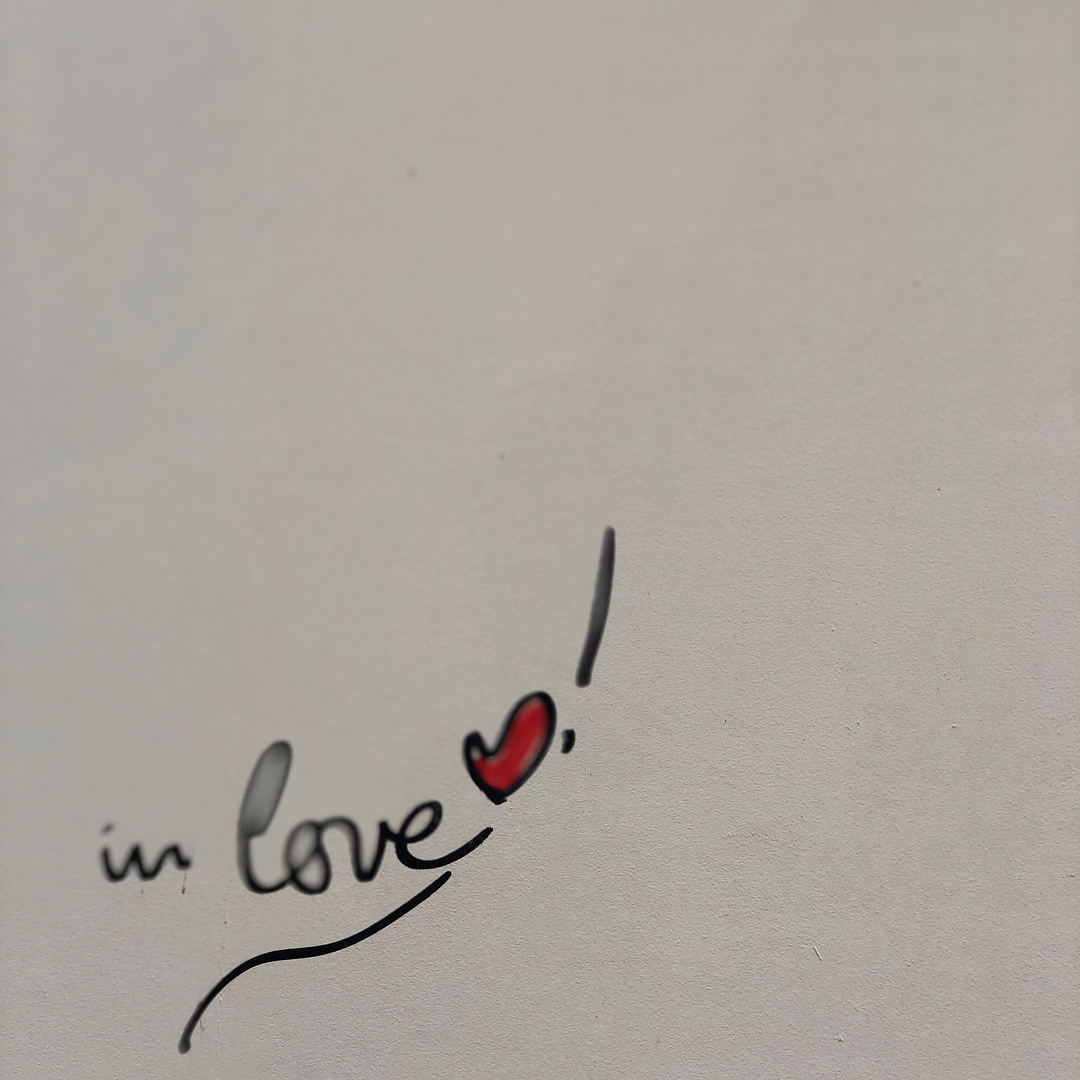 in love ❤️!